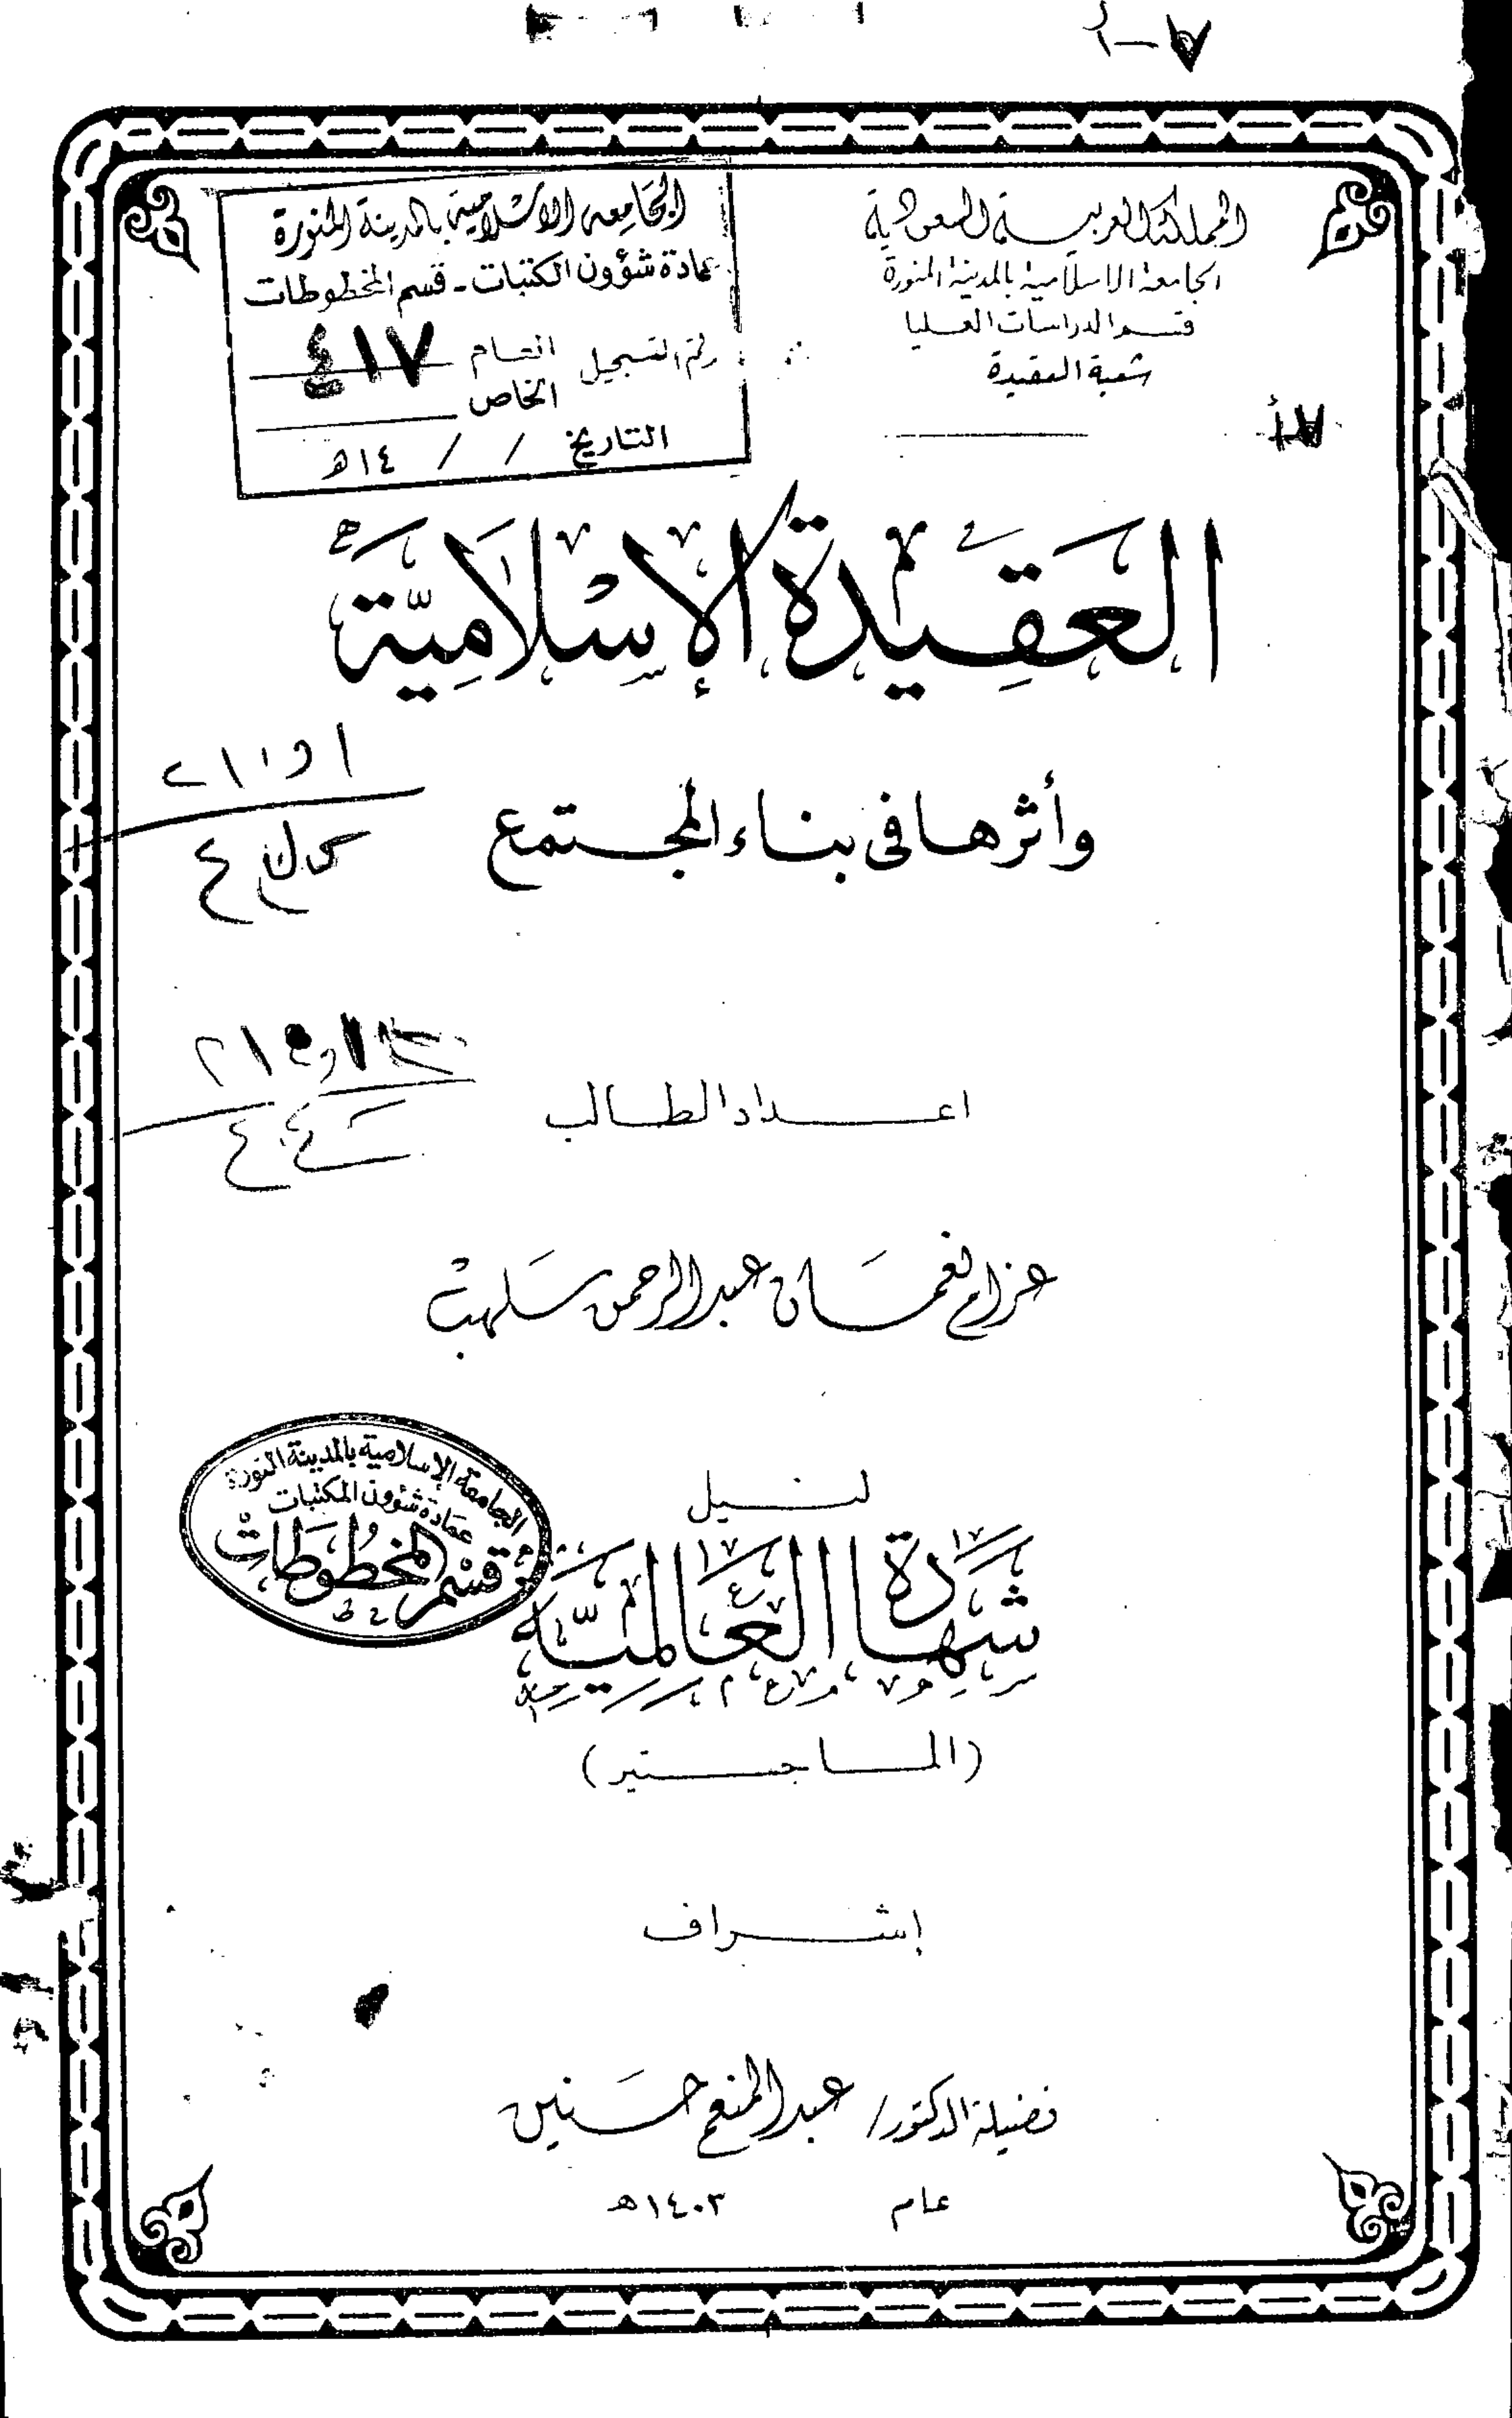 المملكة العربية السعودية
الجامعة الاسلامية بالمدينة المنورة
قسم الدراسات العليا
شعبة العقيدة
الجامعة الاسلامية بالمدينة المنورة
عمادة شؤون المكتبات - قسم المخطوطات
رقم التسجيل العام ٤١٧
الخاص
التاريخ / / ١٤هـ
العَقِيدة الإسْلَامِيَّة
وأثرها فى بناء المجتمع
اعداد الطالب
عزام نعمان عبد الرحمن سلهب
لنيل
شهادة العَالميَّة
(الماجستير)
الجامعة الإسلامية بالمدينة المنورة
عمادة شئوون المكتبات
قسم المخطوطات
إشراف
فضيلة الدكتور/ عبد المنعم حسنين
عام ١٤٠٣هـ